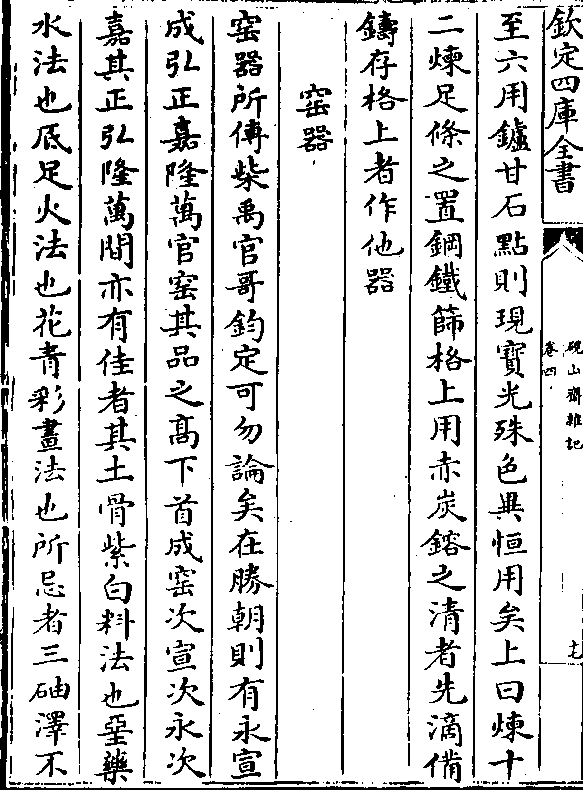 欽定四庫全書
硯山齋雜記
卷四
十七
至六用鑪甘石點則現寶光殊色異恒用矣上曰煉十
二煉足條之置鋼鐵篩格上用赤炭鎔之清者先滴備
鑄存格上者作他器
窑器
窑器所傳柴禹官哥鈞定可勿論矣在勝朝則有永宣
成弘正嘉隆萬官窑其品之髙下首成窑次宣次永次
嘉其正弘隆萬間亦有佳者其土骨紫白料法也堊藥
水法也底足火法也花青彩畫法也所忌者三釉澤不